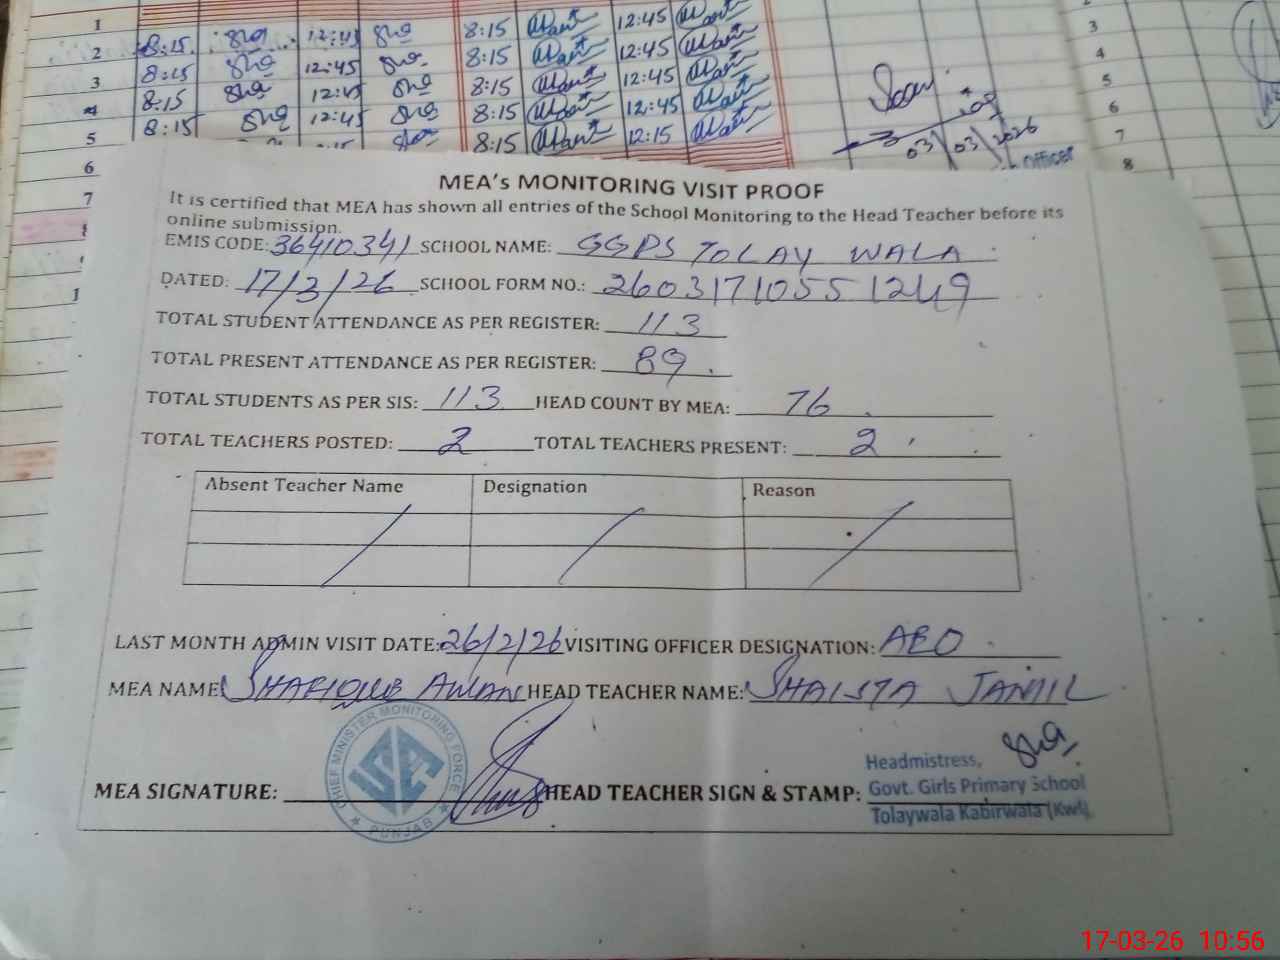 1 8:15 12:45 8:15 12:45
2 8:15 12:45 8:15 12:45
3 8:15 12:45 8:15 12:45
4 8:15 12:45 8:15 12:45
5 8:15 12:15
6
7
03/03/2026
officer
3
4
5
6
7
8
MEA's MONITORING VISIT PROOF
It is certified that MEA has shown all entries of the School Monitoring to the Head Teacher before its
online submission.
EMIS CODE: 36410341 SCHOOL NAME: GGPS TOLAY WALA
DATED: 17/3/26 SCHOOL FORM NO.: 26031710551249
TOTAL STUDENT ATTENDANCE AS PER REGISTER: 113
TOTAL PRESENT ATTENDANCE AS PER REGISTER: 89
TOTAL STUDENTS AS PER SIS: 113 HEAD COUNT BY MEA: 76
TOTAL TEACHERS POSTED: 2 TOTAL TEACHERS PRESENT: 2
Absent Teacher Name Designation Reason
LAST MONTH ADMIN VISIT DATE: 26/2/26 VISITING OFFICER DESIGNATION: AEO
MEA NAME: SHARIQUE AWAN HEAD TEACHER NAME: SHAISTA JAMIL
CHIEF MINISTER MONITORING FORCE
PUNJAB
MEA SIGNATURE: HEAD TEACHER SIGN & STAMP:
Headmistress,
Govt. Girls Primary School
Tolaywala Kabirwala (Kwl)
17-03-26 10:56